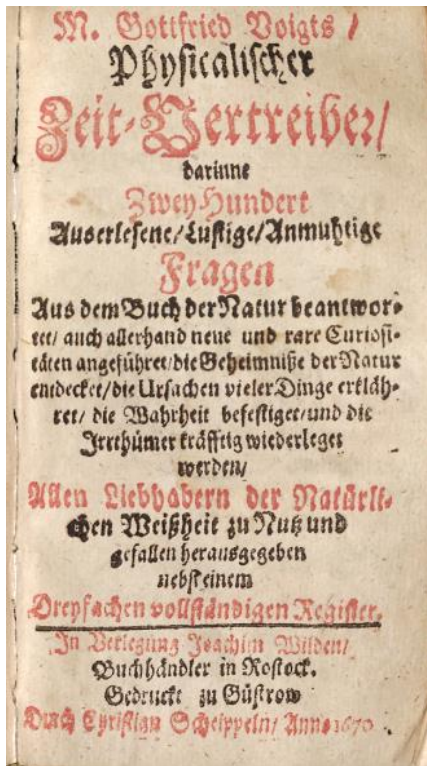 M. Gottfried Voigts /
Physicalischer
Zeit-Vertreiber/
darinne
Zwey Hundert
Auserlesene/Lustige/Anmuhtige
Fragen
Aus dem Buch der Natur beantwor-
tet/ auch allerhand neue und rare Curiosi-
täten angeführet/die Geheimniße der Natur
entdecket/die Ursachen vieler Dinge erkläh-
ret/ die Wahrheit befestiget/und die
Irrthümer kräfftig wiederleget
werden/
Allen Liebhabern der Natürli-
chen Weißheit zu Nutz und
gefallen herausgegeben
nebst einem
Dreyfachen vollständigen Register.
In Verlegung Joachim Wilden/
Buchhändler in Rostock.
Gedruckt zu Güstrow
Durch Christian Scheippeln/ Anno 1670